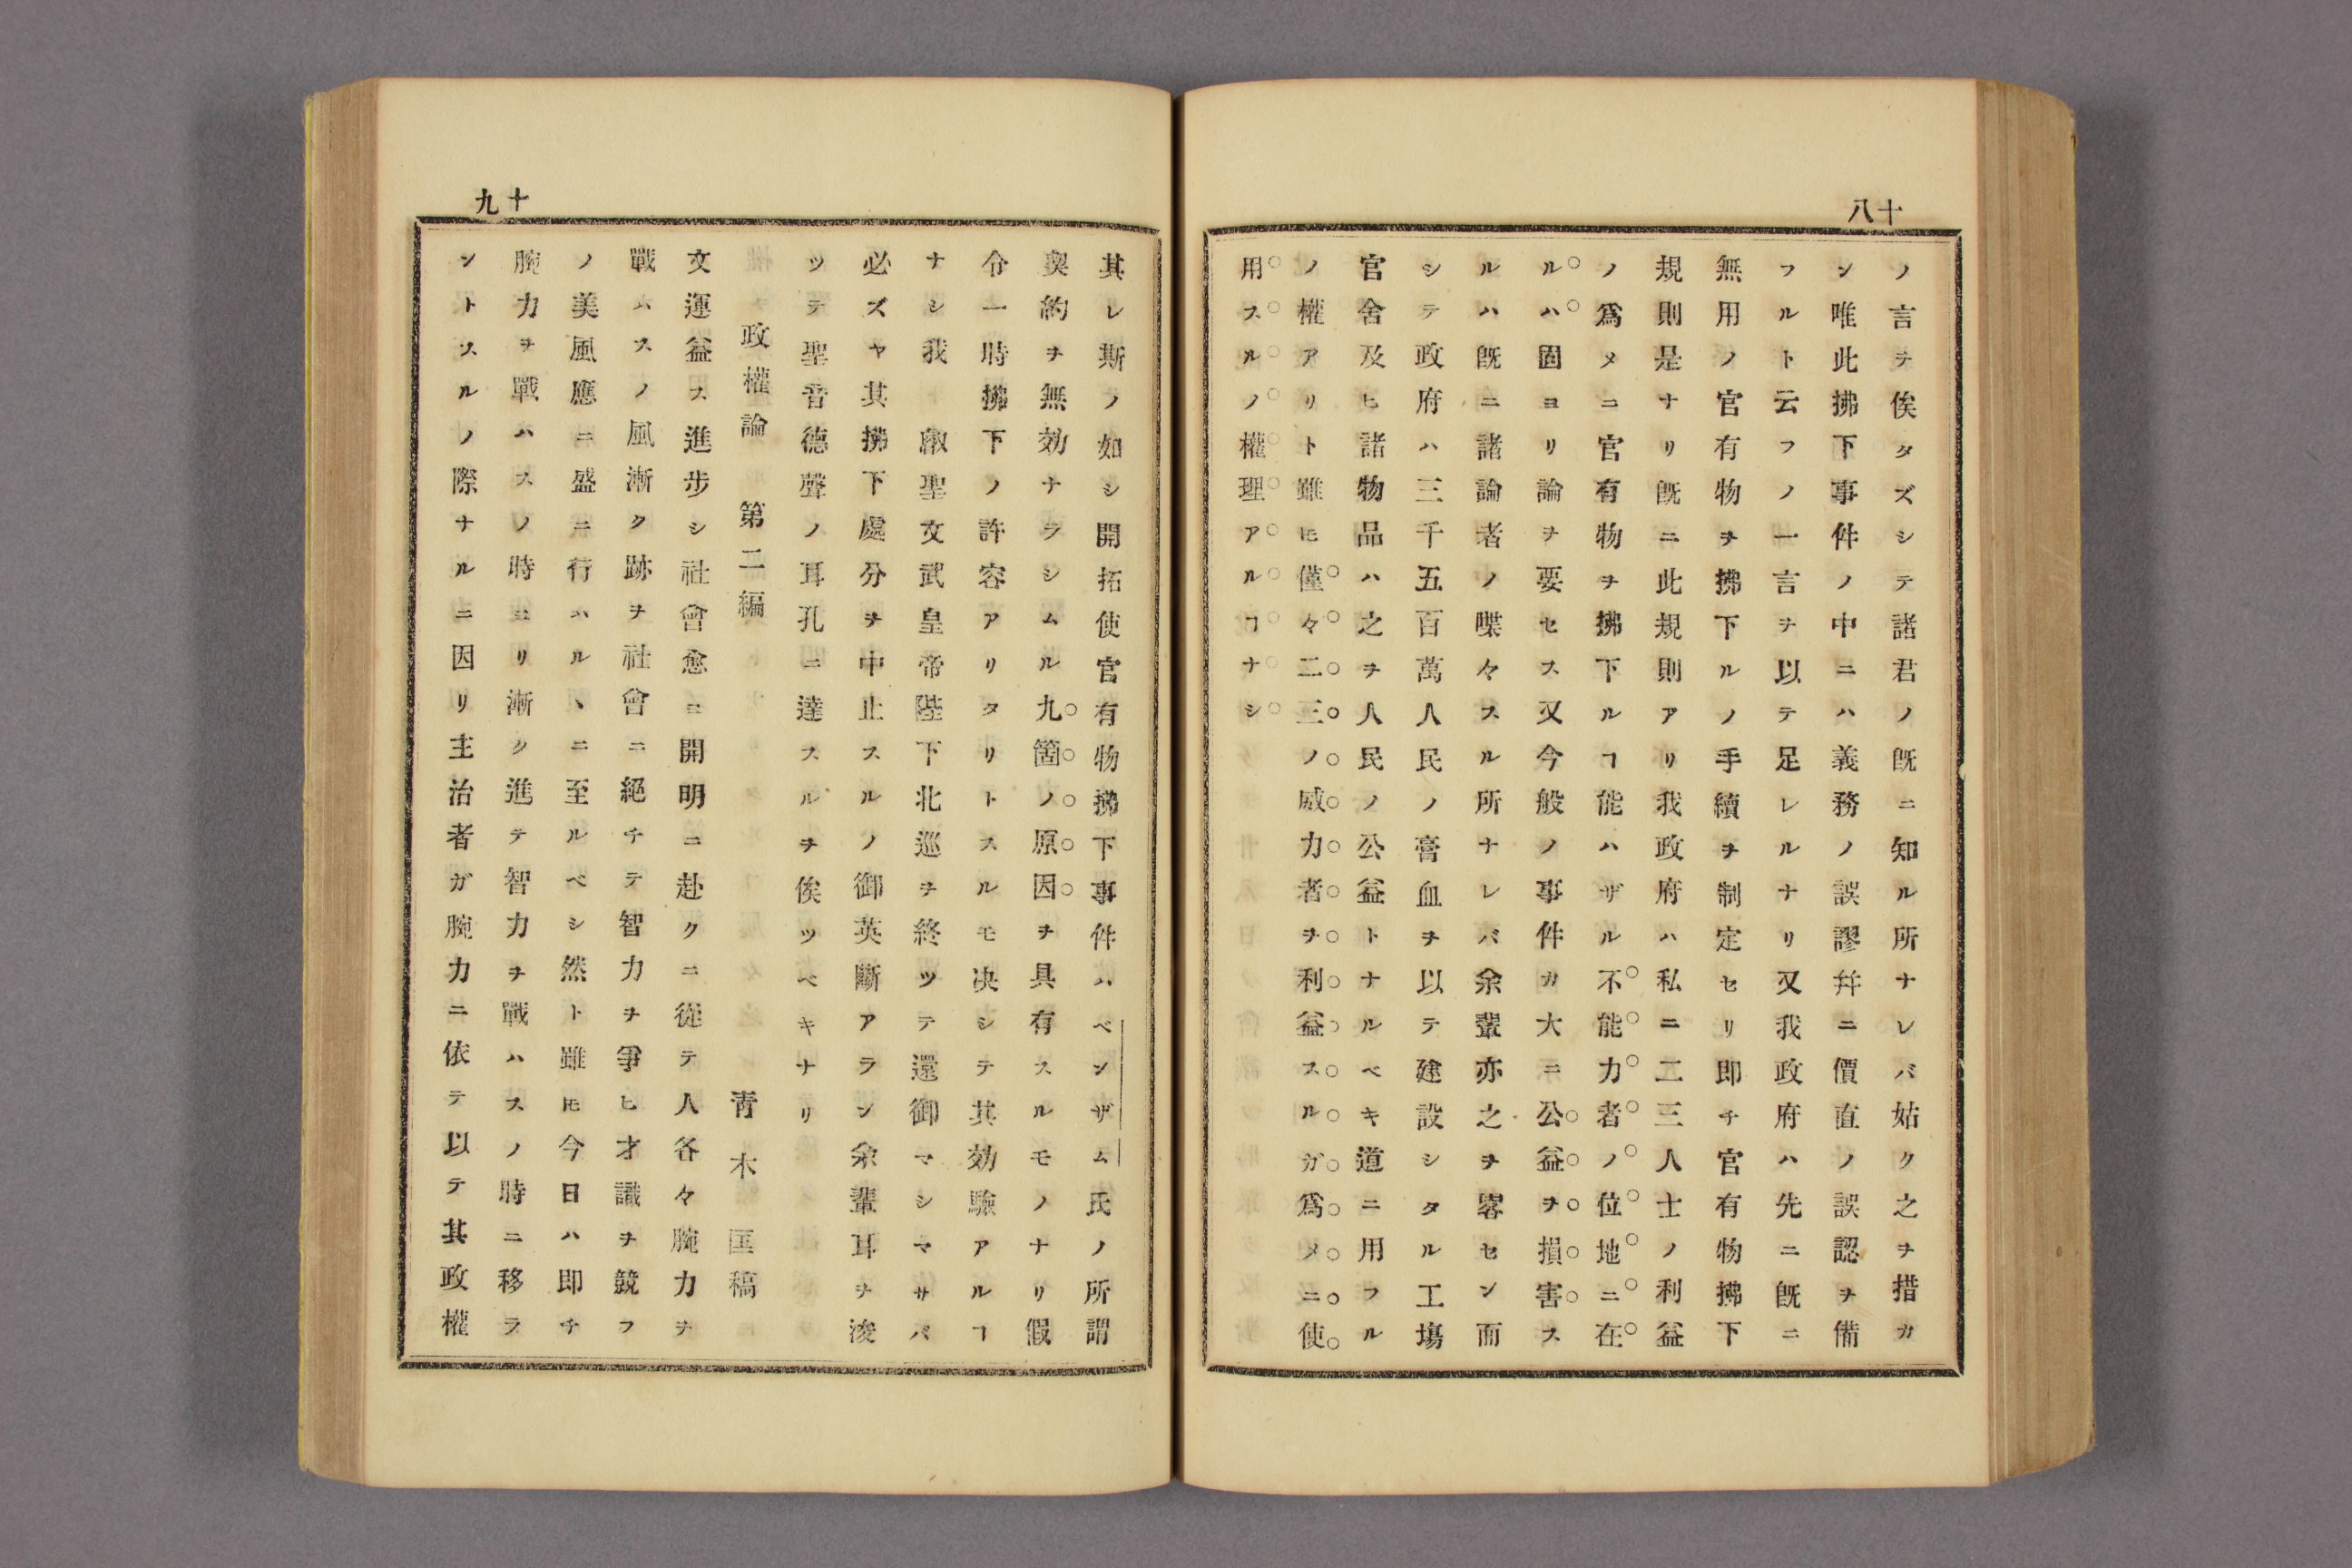 十八
ノ言ヲ俟タズシテ諸君ノ既ニ知ル所ナレバ姑ク之ヲ措カ
ン唯此拂下事件ノ中ニハ義務ノ誤謬幷ニ價直ノ誤認ヲ備
フルト云フノ一言ヲ以テ足レルナリ又我政府ハ先ニ既ニ
無用ノ官有物ヲ拂下ルノ手續ヲ制定セリ即チ官有物拂下
規則是ナリ既ニ此規則アリ我政府ハ私ニ二三人士ノ利益
ノ爲メニ官有物ヲ拂下ルヿ能ハザル不能力者ノ位地ニ在
ルハ固ヨリ論ヲ要セス又今般ノ事件カ大ニ公益ヲ損害ス
ルハ既ニ諸論者ノ喋々スル所ナレバ余輩亦之ヲ畧セン而
シテ政府ハ三千五百萬人民ノ膏血ヲ以テ建設シタル工塲
官舍及ヒ諸物品ハ之ヲ人民ノ公益トナルベキ道ニ用フル
ノ權アリト雖𪜈僅々二三ノ威力者ヲ利益スルガ爲メニ使
用スルノ權理アルヿナシ
十九
其レ斯ノ如シ開拓使官有物拂下事件ハベンザム氏ノ所謂
契約ヲ無効ナラシムル九箇ノ原因ヲ具有スルモノナリ假
令一時拂下ノ許容アリタリトスルモ决シテ其効驗アルヿ
ナシ我 叡聖文武皇帝陛下北巡ヲ終ツテ還御マシマサバ
必ズヤ其拂下處分ヲ中止スルノ御英斷アラン余輩耳ヲ浚
ツテ聖音德聲ノ耳孔ニ達スルヲ俟ツベキナリ
政權論 第二編 靑木匡稿
文運益ス進步シ社會愈ヨ開明ニ赴クニ從テ人各々腕力ヲ
戰ハスノ風漸ク跡ヲ社會ニ絕チテ智力ヲ爭ヒ才識ヲ競フ
ノ美風應ニ盛ニ行ハルヽニ至ルベシ然ト雖𪜈今日ハ即チ
腕力ヲ戰ハスノ時ヨリ漸ク進テ智力ヲ戰ハスノ時ニ移ラ
ントスルノ際ナルニ因リ主治者ガ腕力ニ依テ以テ其政權